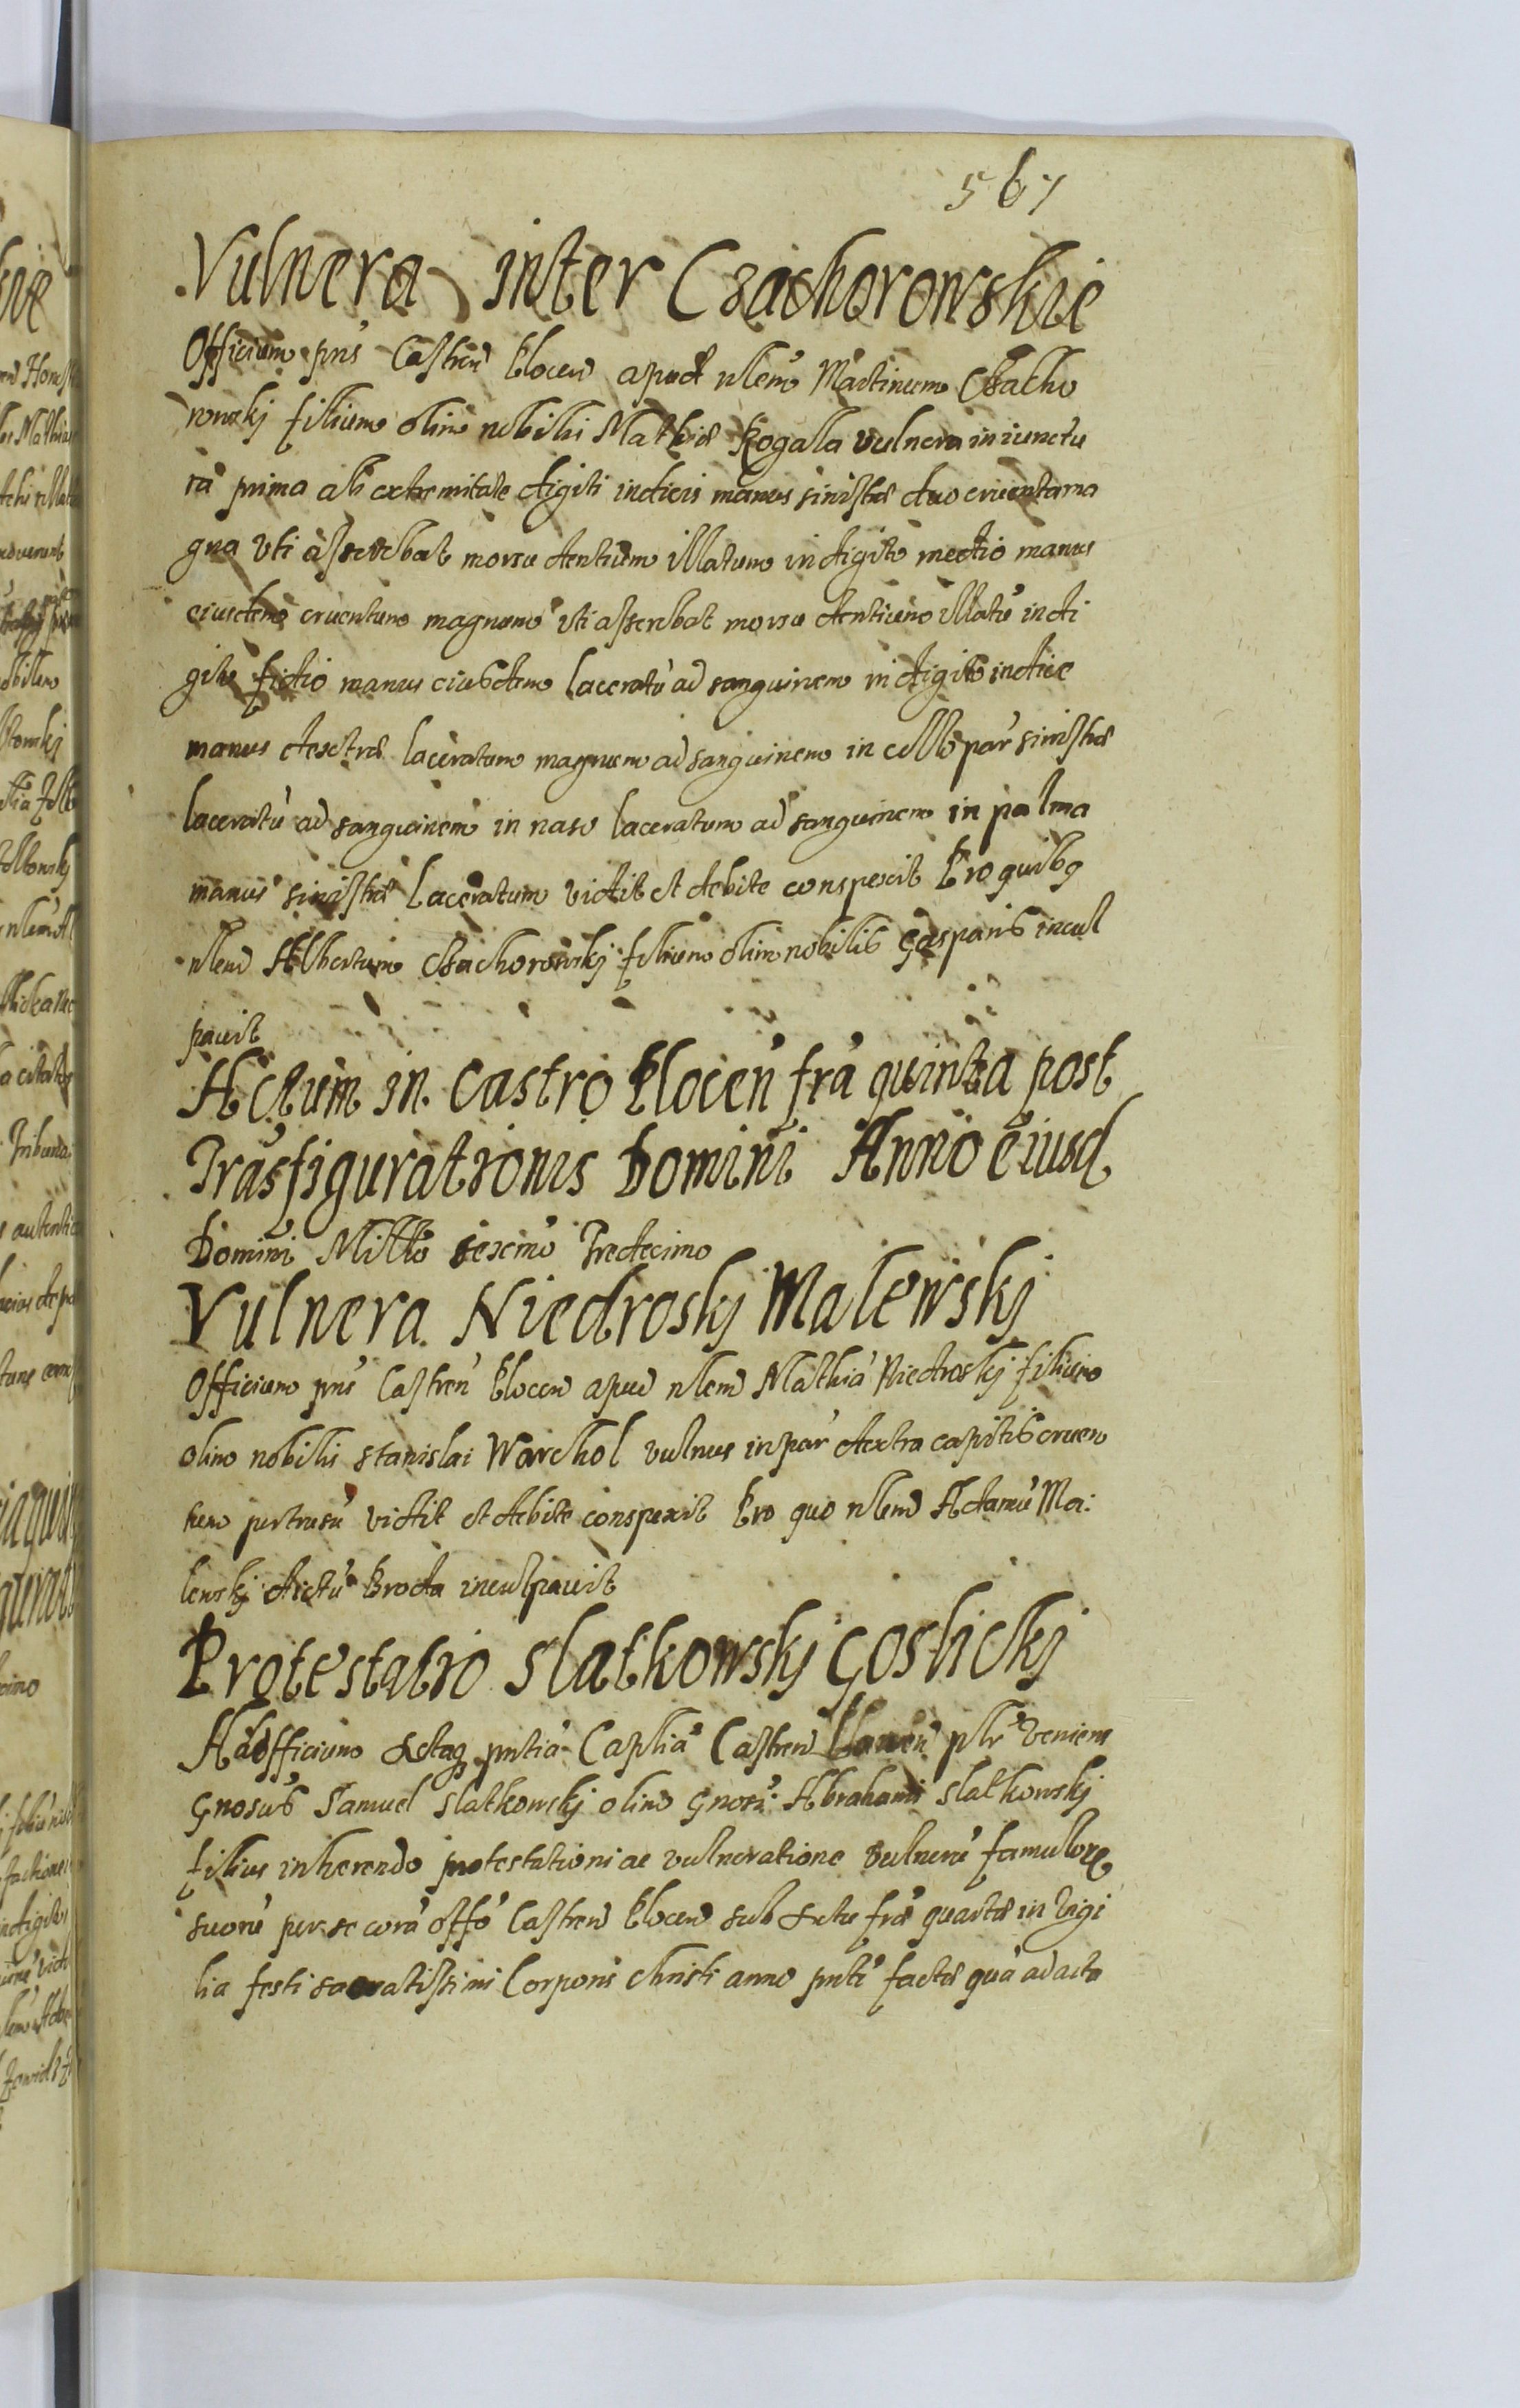 567
Vulnera inter Czachorowskie
Officium pns Castren Plocen apud nlem Martinum Czacho
rowskj filium olim nobilis Mathiæ Rogala vulnera in iunctu
ra prima ab extremitate digiti indicis manus sinistræ duo cruenta ma
gna vti asserebat morsu dentium illatum in digito medio manus
eiusdem cruentum magnum vti asserebat morsu dentium illatū in di
gito fidio manus eiusdem laceratū ad sanguinem in digito indice
manus dextræ laceratum magnum ad sanguinem in collo par sinistræ
laceratū ad sanguinem in naso laceratum ad sanguinem in palma
manus sinistræ laceratum vidit et debite conspexit Pro quibq
nlem Albertum Czachorowskj filium olim nobilis Gasparis incul
pavit
Actum in Castro Plocen fra quinta post
Trasfigurationis Domini Anno eiusd
Domini Millo sexcmo Tredecimo
Vulnera Niedroskj Malewskj
Officium pns Castren Plocen apud nlem Mathia Niedroskj filium
olim nobilis Stanislai Warchol vulnus in par dextra capitis cruen
tum pertusū vidit et debite conspexit Pro quo nlem Adamū Ma:
lewskj dictū Broda inculpavit
Protestatio Slatkowskj Goslickj
Ad officium Actaq pntia Caplia Castren Plocen plr veniens
Gnosus Samuel Slatkowskj olim Gnosi Abrahami Slatkowskj
filius inherendo protestationi ac vulneratione vulnerū famulorz
suorū per se corā offo Castren Plocen sub Actu fræ quartæ in Vigi
lia festi sacratissimi Corporis Christi anno pnti factæ quā ad acta